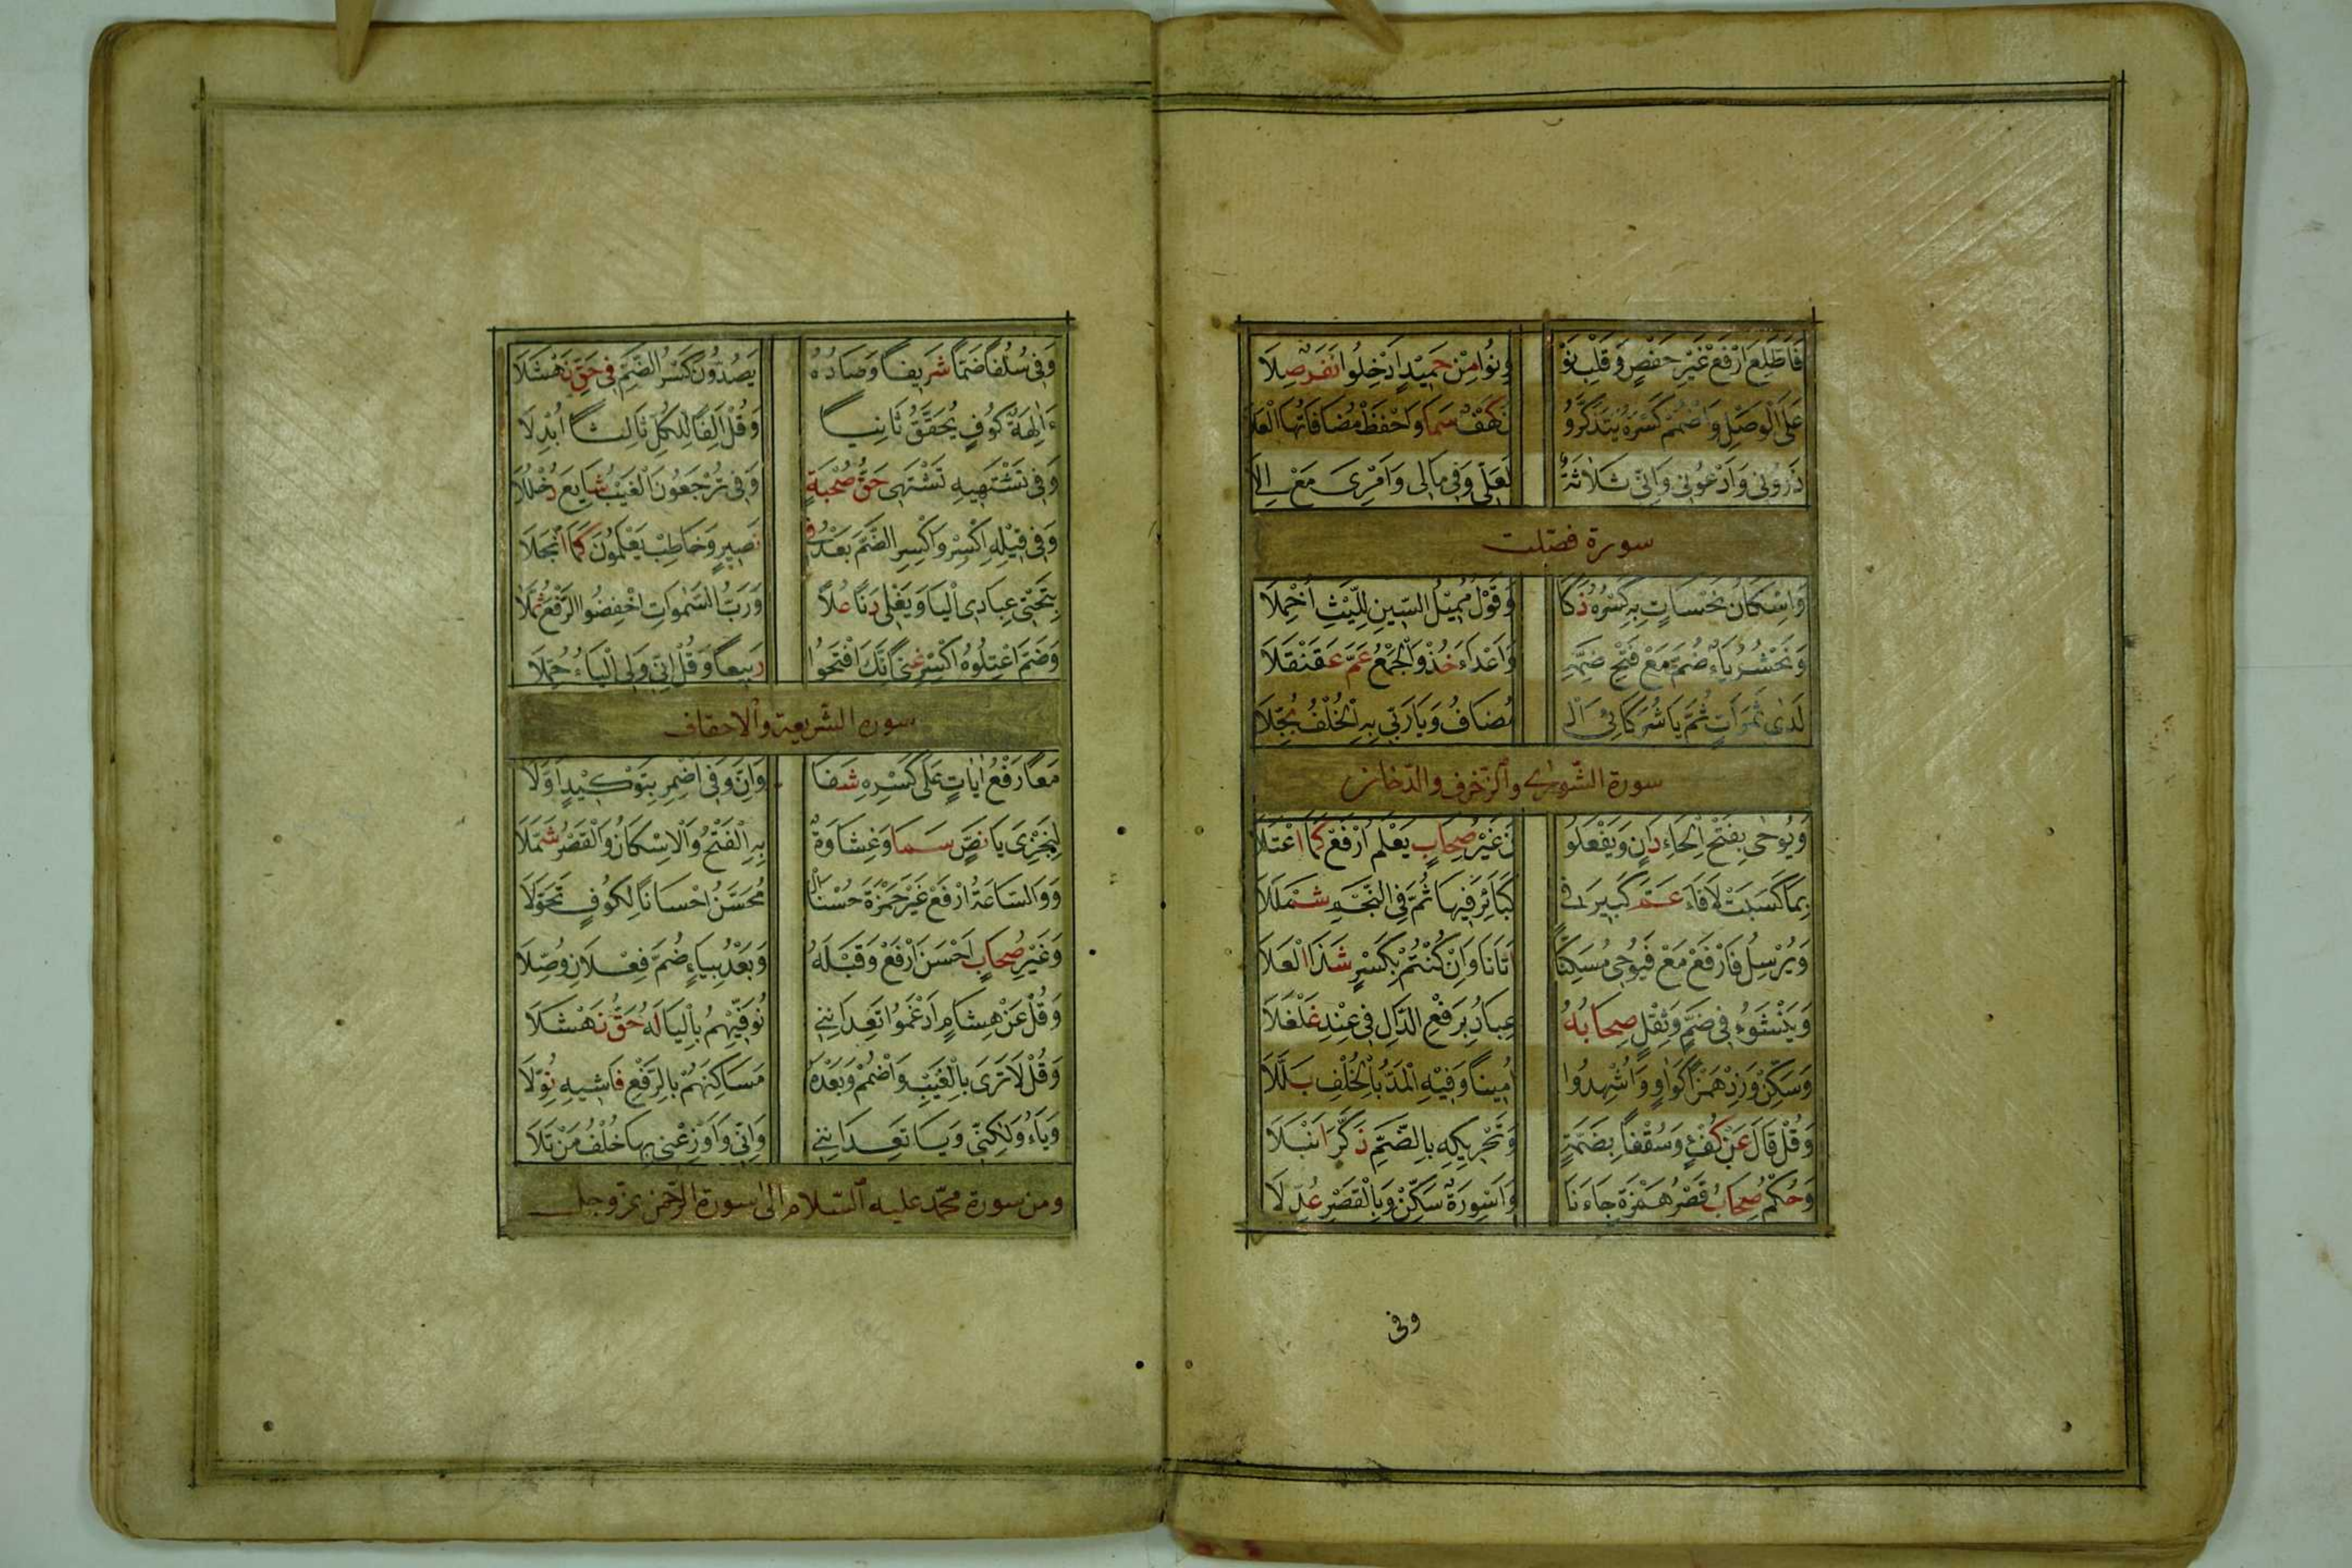 فَاَطَّلِعَ ارْفَعْ غَيْرَ حَفْصٍ وَقَلْبِ نَوْ وِنُوا مِنْ حَمِيْدٍ اَدْخِلُوا نَفَرٌ صِلَا
عَلَى الْوَصْلِ وَاضْمُمْ كَسْرَهُ يَتَذَكَّرُو نَ كَهْفٌ سَمَا وَاحْفَظْ مُضَافَاتُهَا الْعَلَا
ذَرُوْنِى وَادْعُوْنِى وَاِنِّى ثَلَاثَةٌ لَعَلِّى وَفِى مَالِى وَاَمْرِى مَعْ اِلَى
سورة فصّلت
وَاِسْكَانُ نَحْسَاتٍ بِهِ كَسْرُهُ ذَكَا وَقَوْلُ مُمِيْلِ السِّيْنِ لِلَّيْثِ اُخْمِلَا
وَنَحْشُرُ يَاءٌ ضُمَّ مَعْ فَتْحِ ضَمِّهِ وَاَعْدَاءَ خُذْ وَالْجَمْعُ عَمَّ عَقَنْقَلَا
لَدٰى ثَمَرَاتٍ ثُمَّ يَا شُرَكَائِىَ الْ مُضَافُ وَيَا رَبِّى بِهِ الْخُلْفُ بُجِّلَا
سورة الشّورى والزّخرف والدّخان
وَيُوحٰى بِفَتْحِ الْحَاءِ دَانٍ وَيَفْعَلُو نَ غَيْرُ صِحَابٍ يَعْلَمَ ارْفَعْ كَمَا اعْتَلَا
بِمَا كَسَبَتْ لَا فَاءَ عَمَّ كَبِيْرَ فِى كَبَائِرَ فِيهَا ثُمَّ فِى النَّجْمِ شَمْلَلَا
وَيُرْسِلُ فَارْفَعْ مَعْ فَيُوْحِى مُسَكِّنًا اَتَانَا وَاَنْ كُنْتُمْ بِكَسْرٍ شَذَا الْعَلَا
وَيَنْشَؤُ فِى ضَمٍّ وَثِقْلٍ صِحَابُهُ عِبَادُ بِرَفْعِ الدَّالِ فِى عِنْدِ غَلْغَلَا
وَسَكِّنْ وَزِدْ هَمْزًا كَوَاوٍ وَاُشْهِدُوا اَمِينًا وَفِيْهِ الْمَدُّ بِالْخُلْفِ بَلَّلَا
وَقُلْ قَالَ عَنْ كُفْؤٍ وَسُقْفًا بِضَمَّةٍ وَتَحْرِيكِهِ بِالضَّمِّ ذَكَّرَ انْبَلَا
وَحُكْمُ صِحَابٍ قَصْرُ هَمْزَةِ جَاءَنَا وَاَسْوِرَةٌ سَكِّنْ وَبِالْقَصْرِ عُدِّلَا
وفى
وَفِى سُلُفًا ضَمَّا شَرِيفٍ وَصَادُهُ يَصُدُّوْنَ كَسْرُ الضَّمِّ فِى حَقِّ نَهْشَلَا
ءَاٰلِهَةٌ كُوْفٍ يُحَقِّقُ ثَانِيًا وَقُلْ اَلِفًا لِلْكُلِّ ثَالِثًا اُبْدِلَا
وَفِى تَشْتَهِيْهِ تَشْتَهِى حَقُّ صُحْبَةٍ وَفِى تُرْجَعُوْنَ الْغَيْبُ شَايَعَ دُخْلُلَا
وَفِى قِيْلِهِ اكْسِرْ وَاكْسِرِ الضَّمَّ بَعْدُ فِى نَصِيرٍ وَخَاطِبْ يَعْلَمُونَ كَمَا انْجَلَا
بِتَحْتِى عِبَادِى اَلْيَا وَيَغْلِى دَنَا عُلًا وَرَبُّ السَّمٰوَاتِ اخْفِضُوا الرَّفْعَ ثُمَّلَا
وَضَمَّ اعْتِلُوهُ اكْسِرْ غِنًى اِنَّكَ افْتَحُوا رَبِيعًا وَقُلْ اِنِّى وَلِى الْيَاءُ حُمِّلَا
سورة الشّريعة والاحقاف
مَعًا رَفْعُ اٰيَاتٍ عَلٰى كَسْرِهِ شَفَا وَاِنَّ وَفِى اَضْمِرْ بِتَوْكِيْدٍ اَوَّلَا
لِيَجْزِىَ يَا نَصٍّ سَمَا وَغِشَاوَةٌ بِهِ الْفَتْحُ وَالْاِسْكَانُ وَالْقَصْرُ شُمِّلَا
وَوَالسَّاعَةُ ارْفَعْ غَيْرَ حَمْزَةَ حُسْنًا الْ مُحَسِّنُ اِحْسَانًا لِكُوْفٍ تَحَوَّلَا
وَغَيْرُ صِحَابٍ اَحْسَنَ ارْفَعْ وَقَبْلَهُ وَبَعْدُ بِيَاءٍ ضُمَّ فِعْلَانِ وُصِّلَا
وَقُلْ عَنْ هِشَامٍ اَدْغَمُوا تَعِدَانِنِى نُوَفِّيَهُمْ بِالْيَا لَهُ حَقُّ نَهْشَلَا
وَقُلْ لَا تَرٰى بِالْغَيْبِ وَاضْمُمْ وَبَعْدَهُ مَسَاكِنَهُمْ بِالرَّفْعِ فَاشِيهِ نُوِّلَا
وَيَاءُ وَلٰكِنِّى وَيَا تَعِدَانِنِى وَاِنِّى وَاَوْزِعْنِى بِهَا خُلْفُ مَنْ تَلَا
ومن سورة محمّد عليه السّلام الى سورة الرّحمن عزّ وجل